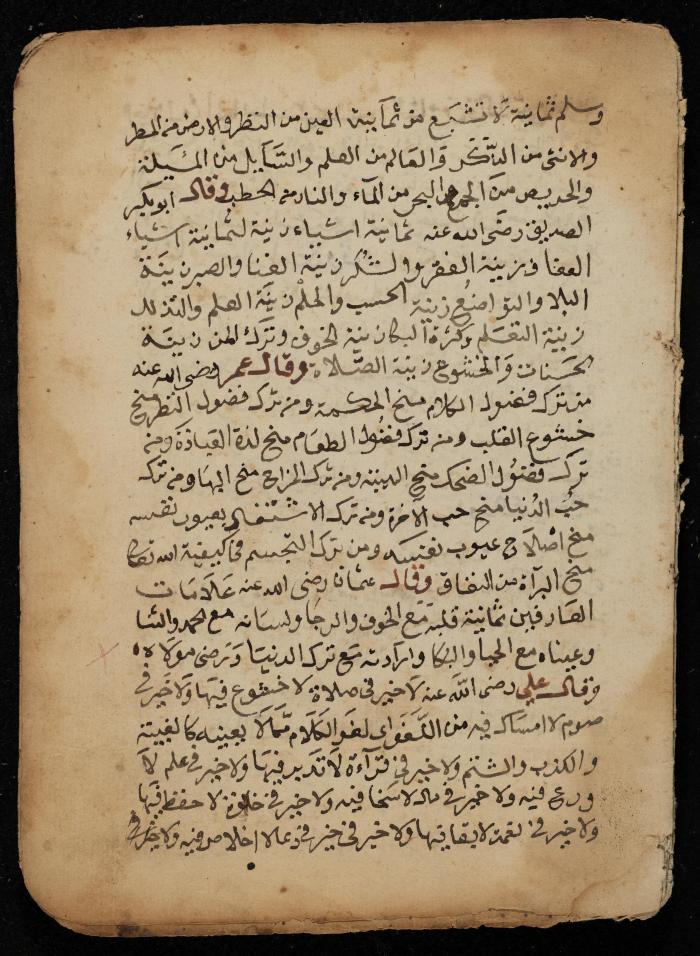 وسلم ثمانية لا تشبع من ثمانية العين من النظر والارض من المطر
والانثى من الذكر والعالم من العلم والسايل من المسيلة
والحريص من الجمع والبحر من الماء والنار من الحطب وقال ابو بكر
الصديق رضى الله عنه ثمانية اشياء زينة لثمانية اشياء
العفاف زينة الفقر والشكر زينة الغنا والصبر زينة
البلا والتواضع زينة الحسب والحلم زينة العلم والتذلل
زينة التعلم وكثرة البكا زينة الخوف وترك المن زينة
الحسنات والخشوع زينة الصلاة وقال عمر رضى الله عنه
من ترك فضول الكلام منح الحكمة ومن ترك فضول النظر منح
خشوع القلب ومن ترك فضول الطعام منح لذة العبادة ومن
ترك فضول الضحك منح الهيبة ومن ترك المزاح منح البها ومن ترك
حب الدنيا منح حب الآخرة ومن ترك الاشتغال بعيوب نفسه
منح اصلاح عيوب نفسه ومن ترك التجسم فى كيفية الله تعالى
منح البرآة من النفاق وقال عثمان رضى الله عنه علامات
العارفين ثمانية قلبه مع الخوف والرجا ولسانه مع الحمد والثنا
وعيناه مع الحيا والبكا وارادته مع ترك الدنيا ورضى مولاه
وقال على رضى الله عنه لا خير فى صلاة لا خشوع فيها ولا خير فى
صوم لا امساك فيه من اللغو اى لغو الكلام مما لا يعينه كالغيبة
والكذب والشتم ولا خير فى قرآءة لا تدبر فيها ولا خير فى علم لا
ورع فيه ولا خير فى مال لا سخا فيه ولا خير فى لا حفظ فيها
ولا خير فى نعمة لا بقا فيها ولا خير فى خير فى دعا لا اخلاص فيه ولا خير فى